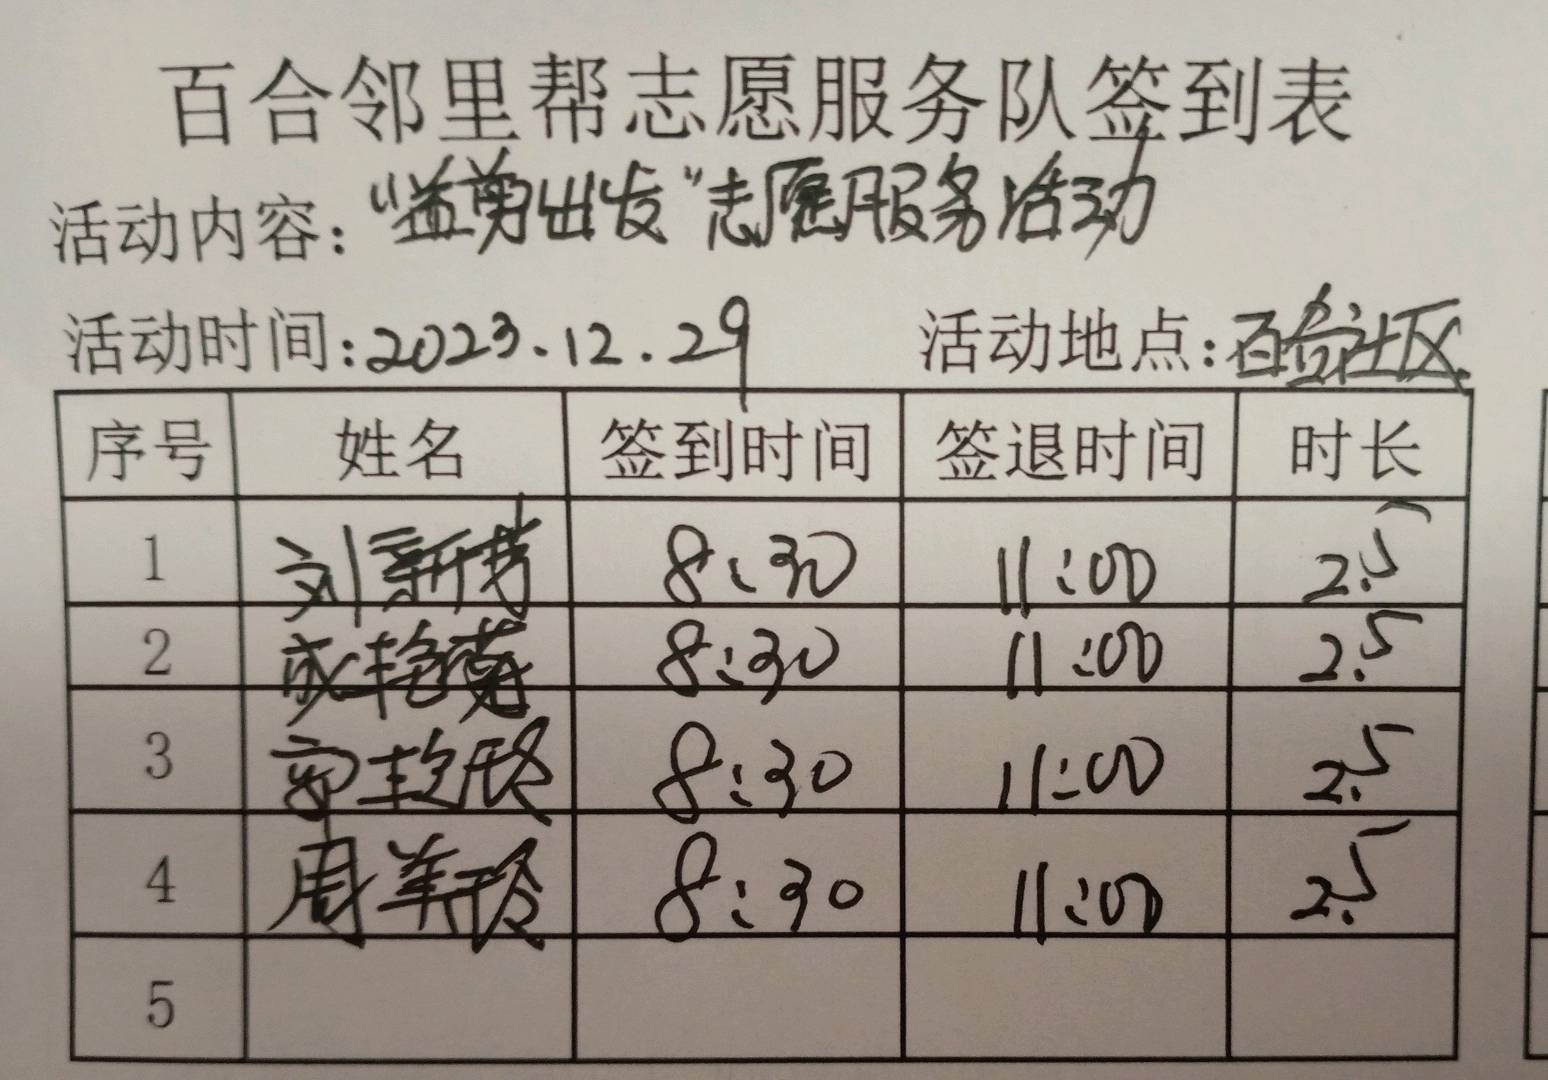 百合邻里帮志愿服务队签到表
活动内容：“益剪出发”志愿服务活动
活动时间：2023.12.29 活动地点：百合社区
序号 姓名 签到时间 签退时间 时长
1 刘新 8:30 11:00 2.5
2 成艳菊 8:30 11:00 2.5
3 8:30 11:00 2.5
4 周 8:30 11:00 2.5
5